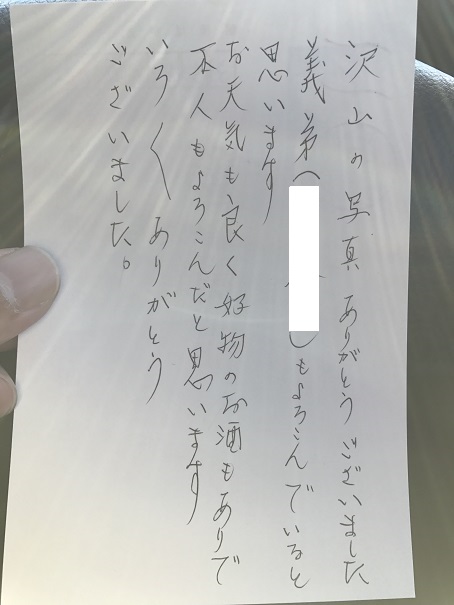 沢山の写真ありがとうございました
義弟(
)もよろこんでいると
思います
お天気も良く好物のお酒もありで
本人もよろこんだと思います
いろ〱ありがとう
ございました。